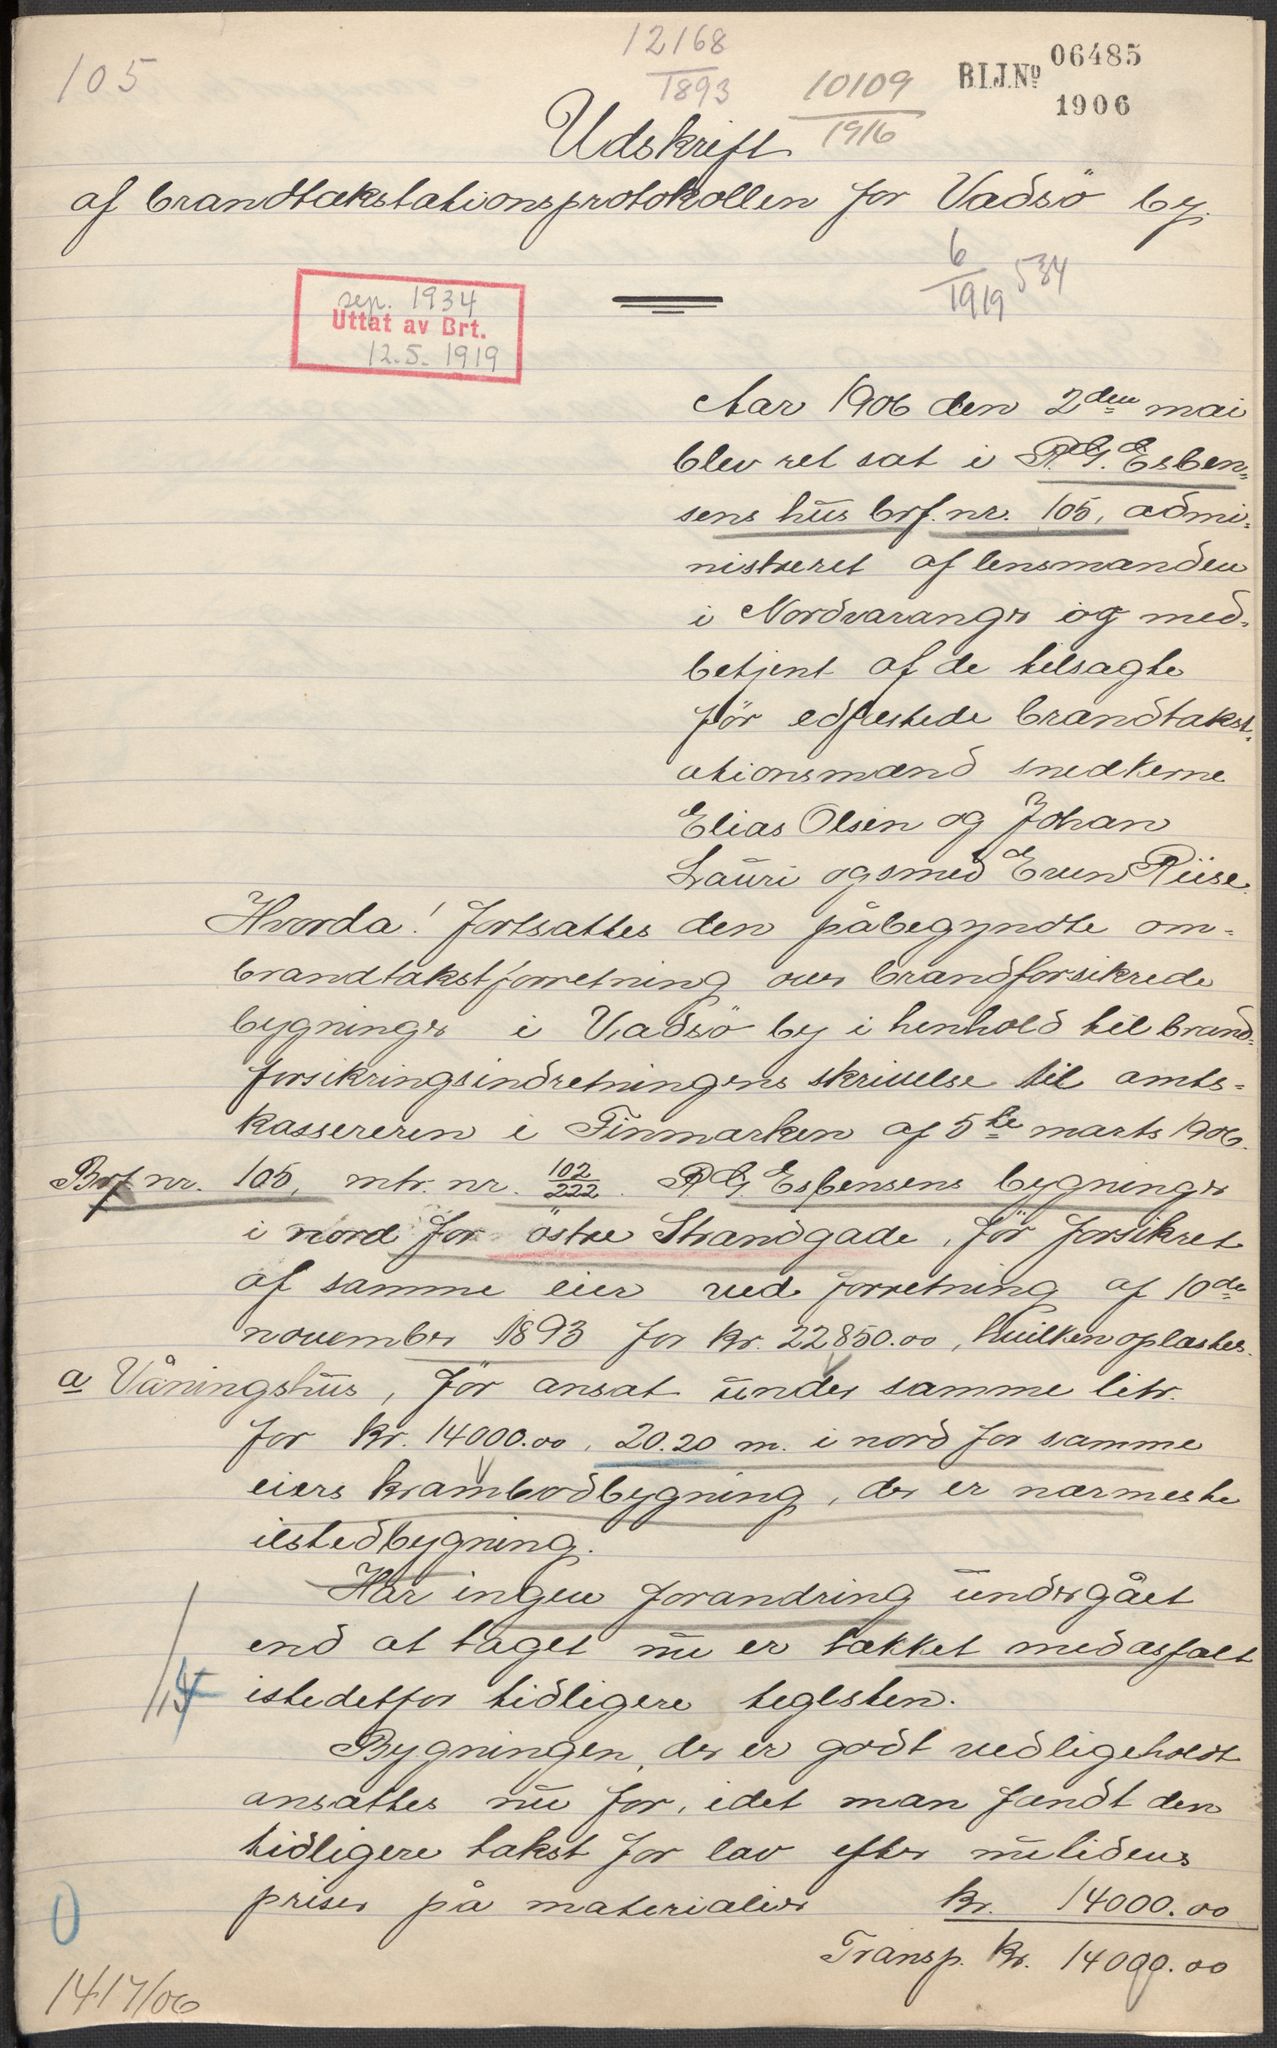 105
12168
1893
10109
1916
BIJ.Nº 06485
1906
Udskrift
af brandtakstationsprotokollen for Vadsö by.
6
1919
534
sep. 1934
Uttat av Brt.
12.5. 1919
Aar 1906 den 2den mai
blev ret sat i R. G. Esben-
sens hus brf. nr. 105, admi-
nistreret af lensmanden
i Nordvaranger og med-
betjent af de tilsagte
før edfæstede brandtakst-
ationsmænd snedkerne
Elias Olsen og Johan
Lauri og smed Even Riise.
Hvorda! fortsattes den påbegyndte om-
brandtakstforretning over brandforsikrede
bygninger i Vadsö by i henhold til brand-
forsikringsindretningens skrivelse til amts-
kassereren i Finmarken af 5te marts 1906.
Brf. nr. 105, mtr. nr. 102/222. R G. Esbensens bygninger
i nord for östre Strandgade, för forsikret
af samme eier ved forretning af 10de
november 1893 for kr. 22850.00, hvilken oplæstes.
a Våningshus, för ansat under samme litr.
for kr. 14000.00, 20.20 m. i nord for samme
eiers krambodbygning, der er nærmeste
ilstedbygning.
Har ingen forandring undergået
end at taget nu er tækket med asfalt
istedetfor tidligere teglsten.
Bygningen, der er godt vedligeholdt
ansattes nu for, idet man fandt den
tidligere takst for lav efter nutidens
priser på materialier kr. 14000.00
Transp. kr. 14000.00
0
1417/06